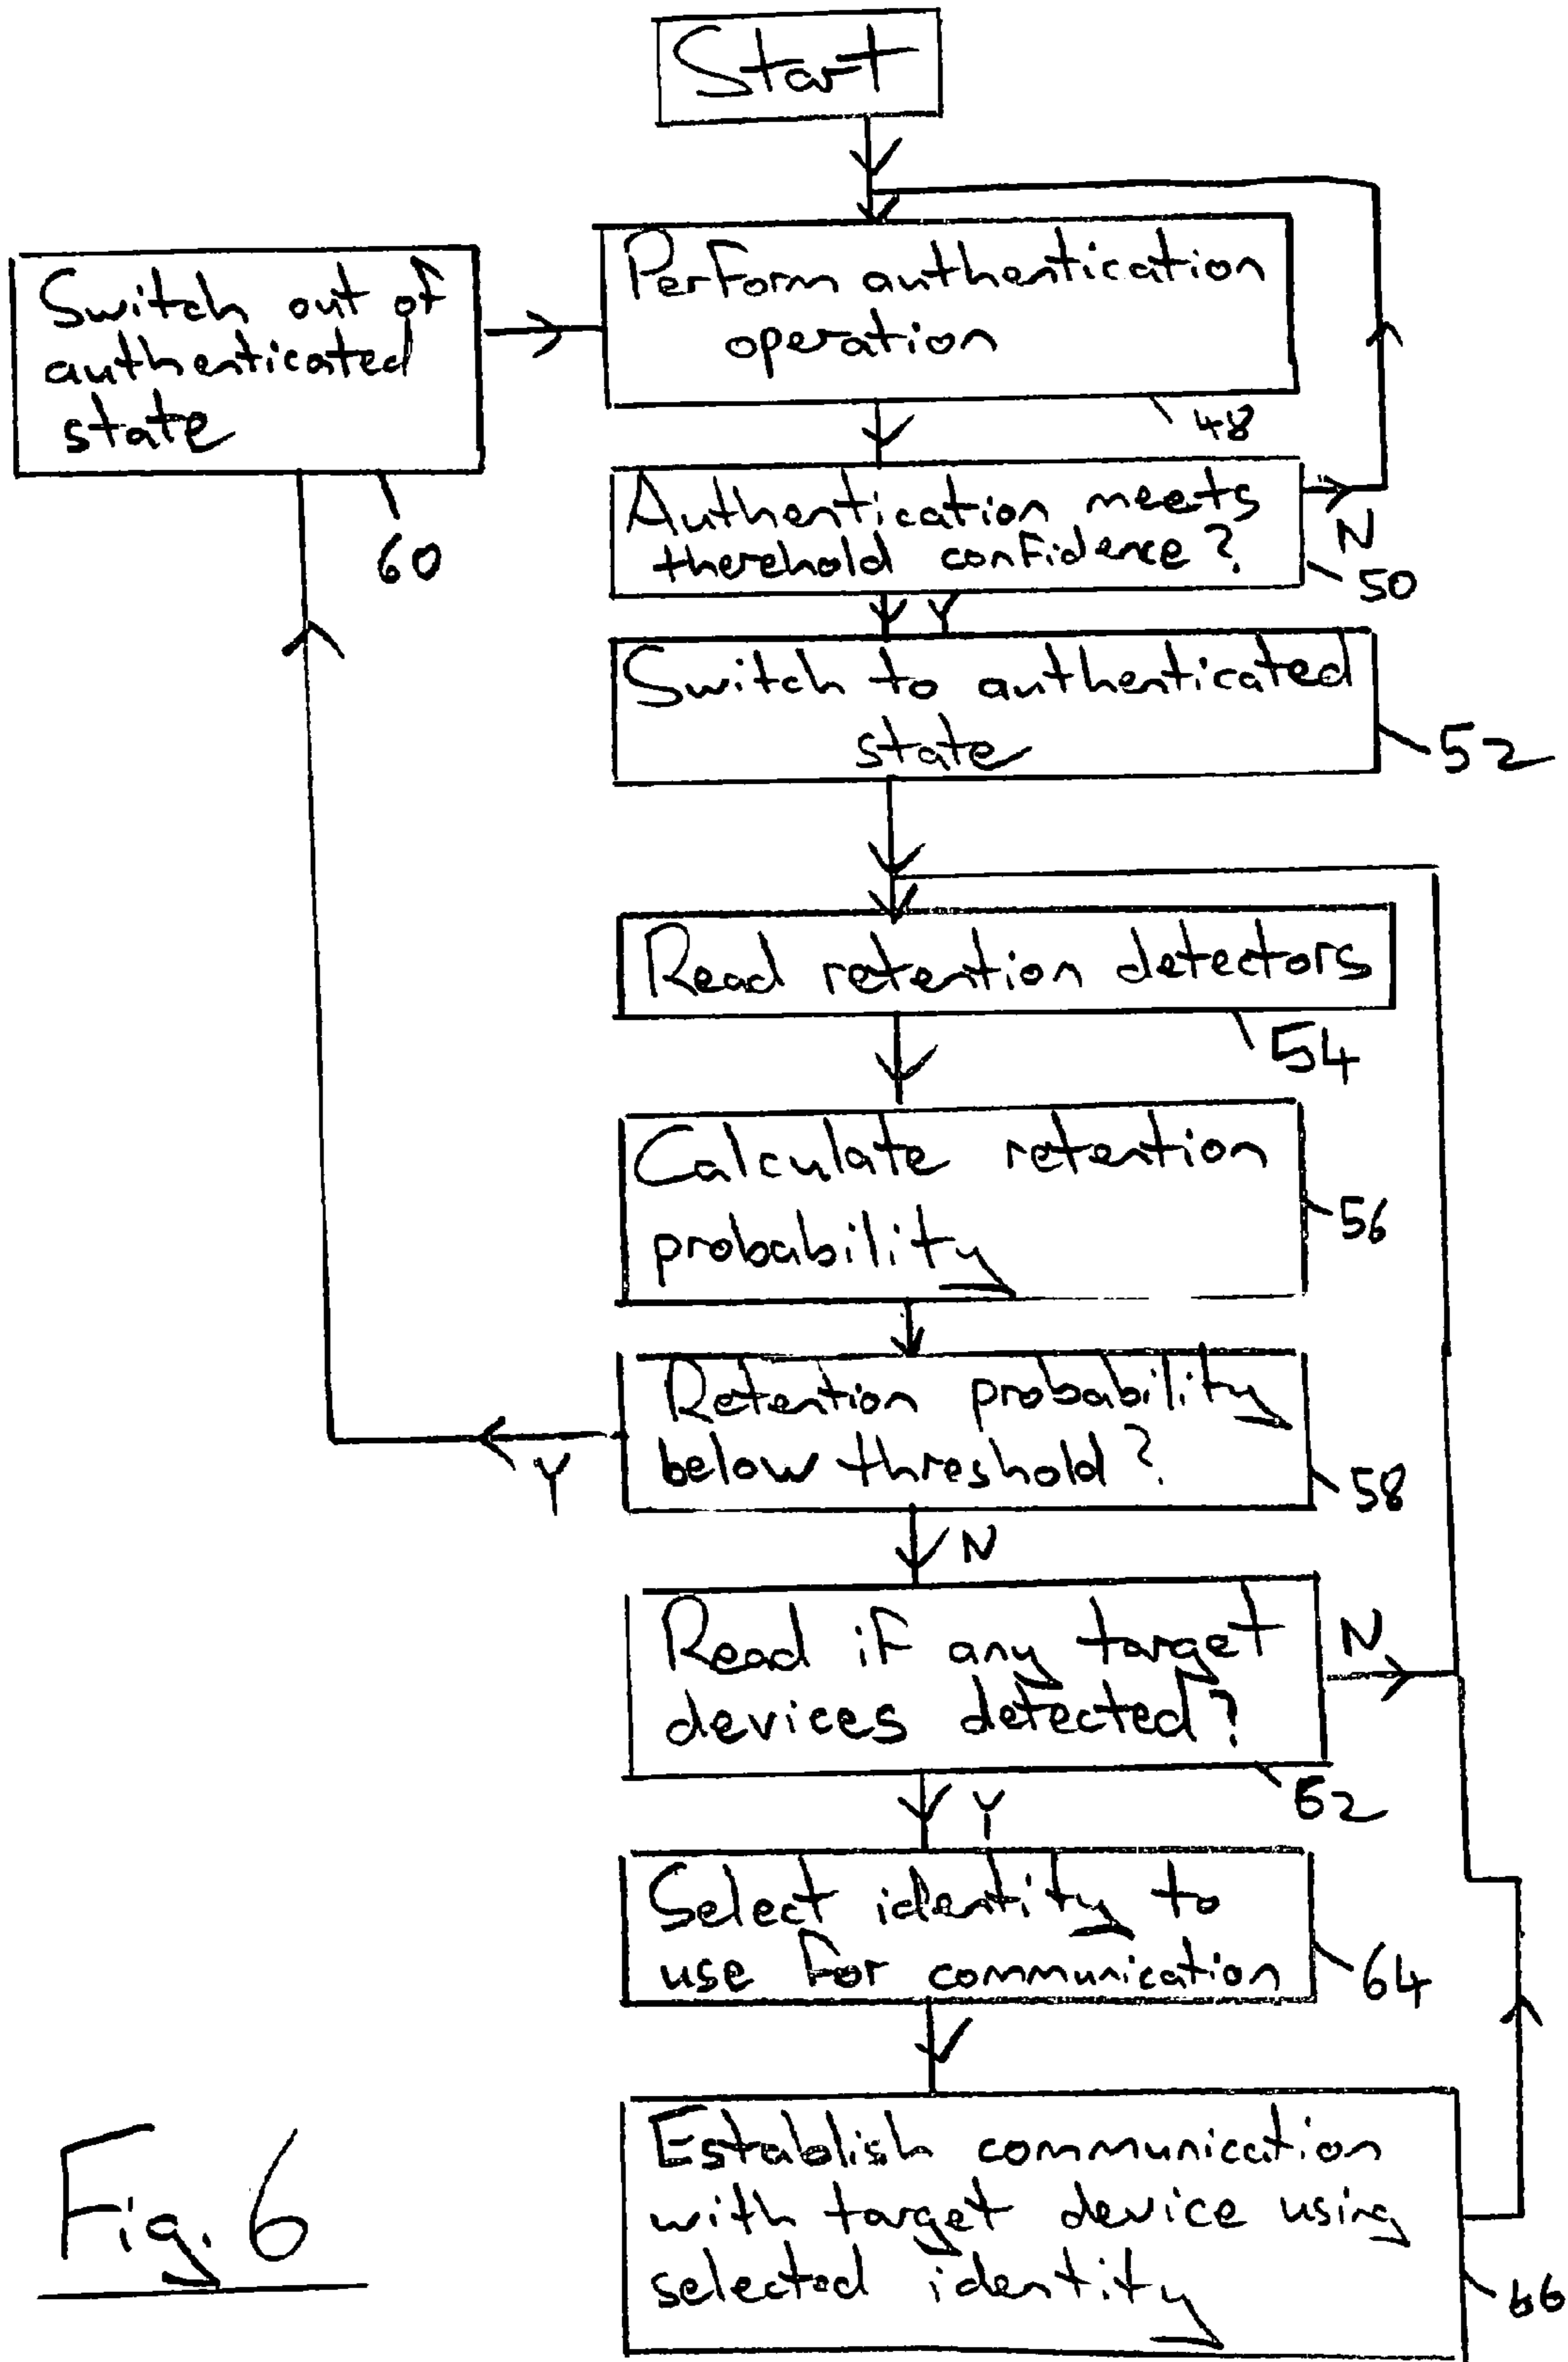 Start
Perform authentication
operation
48
Switch out of
authenticated
state
60
Authentication meets
therehold confidence?
N
50
Y
Switch to authenticated
state
52
Read retention detectors
54
Calculate retention
probability
56
Retention probability
below threshold?
58
Y
N
Read if any target
devices detected?
N
62
Y
Select identity to
use for communication
64
Establish communication
with target device using
selected identity
66
Fig. 6